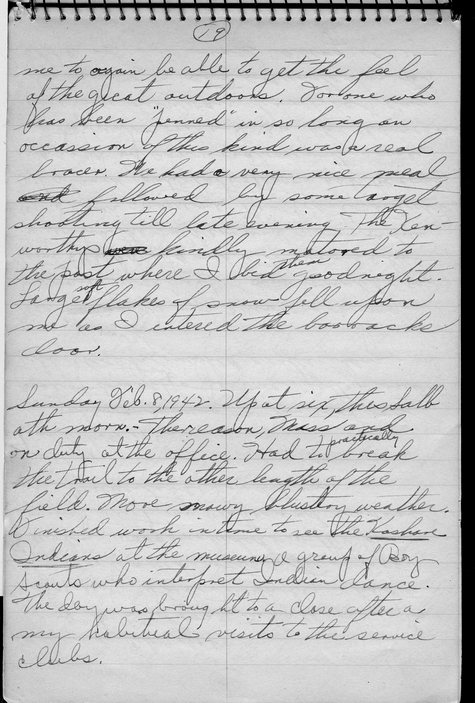 19
me to again be able to get the feel
of the great outdoors. For one who
has been "penned" in so long an
occassion of this kind was a real
bracer. We had a very nice meal
and followed by some target
shooting till late evening. The Ken-
worthys were kindly motored to
the post where I bid them goodnight.
Large soft flakes of snow fell upon
me as I intered the barracks
door.
Sunday Feb. 8, 1942. Up at six, this Sabb
ath morn. - The reason, Mass and
on duty at the office. Had to practically break
the trail to the other length of the
field. More snowy blustery weather.
Finished work in time to see the Koshare
Indians at the museum, a group of Boy
Scouts who interpret Indian dance.
The day was brought to a close after a
my habitual visits to the service
clubs.